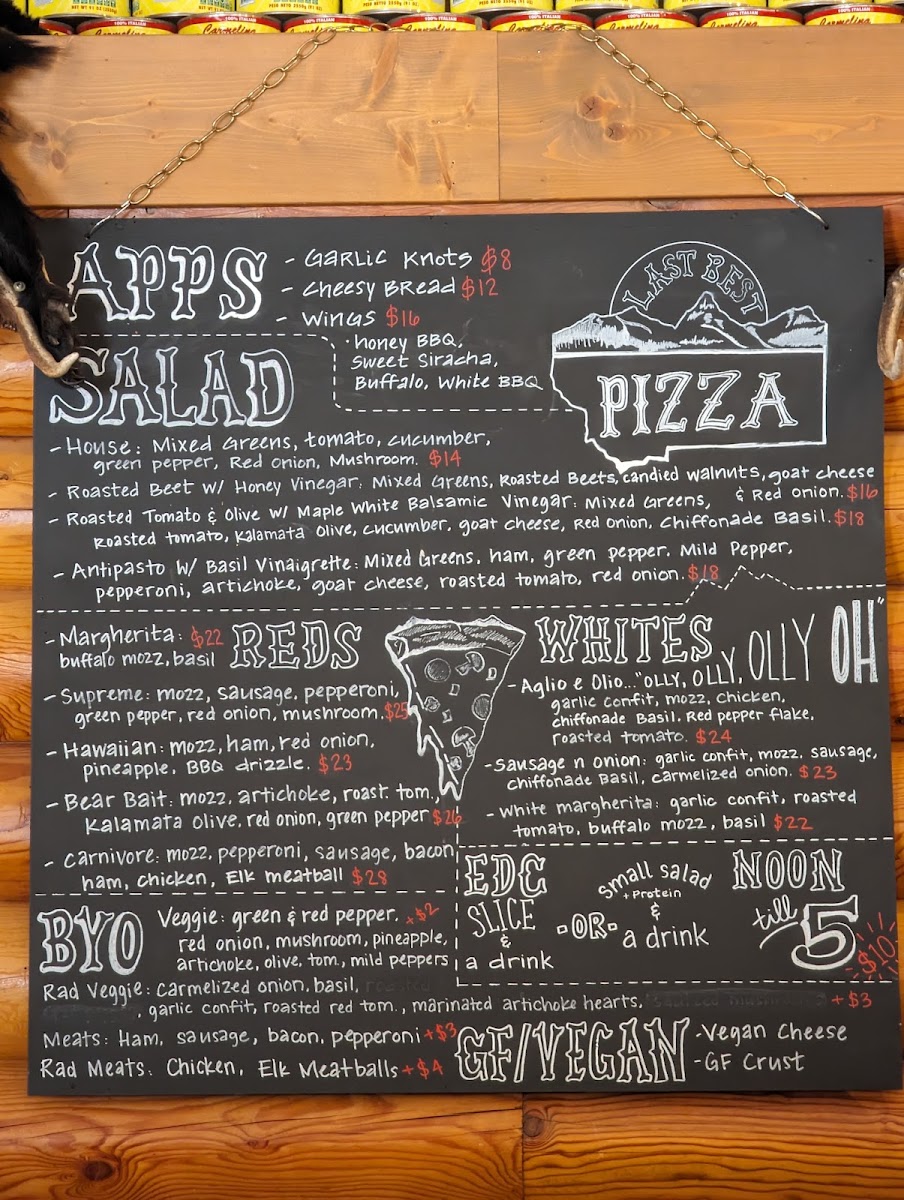 100% ITALIAN
Carmelina
100% ITALIAN
Carmelina
100% ITALIAN
Carmelina
100% ITALIAN
Carmelina
APPS
- Garlic Knots $8
- Cheesy Bread $12
- Wings $16
· honey BBQ,
Sweet Siracha,
Buffalo, White BBQ
LAST BEST
PIZZA
SALAD
- House: Mixed Greens, tomato, cucumber,
green pepper, Red onion, Mushroom. $14
- Roasted Beet w/ Honey Vinegar: Mixed Greens, Roasted Beets, candied walnuts, goat cheese
& Red onion. $16
- Roasted Tomato & Olive w/ Maple White Balsamic Vinegar: Mixed Greens,
Roasted tomato, Kalamata Olive, cucumber, goat cheese, Red onion, Chiffonade Basil. $18
- Antipasto w/ Basil Vinaigrette: Mixed Greens, ham, green pepper. Mild Pepper,
pepperoni, artichoke, goat cheese, roasted tomato, red onion. $18
REDS
- Margherita: $22
buffalo mozz, basil
- Supreme: mozz, sausage, pepperoni,
green pepper, red onion, mushroom. $25
- Hawaiian: mozz, ham, red onion,
pineapple, BBQ drizzle. $23
- Bear Bait: mozz, artichoke, roast. tom.,
Kalamata olive, red onion, green pepper $26
- Carnivore: mozz, pepperoni, sausage, bacon
ham, chicken, Elk meatball $28
WHITES
- Aglio e Olio..."OLLY, OLLY, OLLY OH"
garlic confit, mozz, chicken,
chiffonade Basil. Red pepper flake,
roasted tomato. $24
- Sausage n onion: garlic confit, mozz, sausage,
chiffonade Basil, carmelized onion. $23
- White margherita: garlic confit, roasted
tomato, buffalo mozz, basil $22
EDC
SLICE
&
a drink
-OR-
Small salad
+ Protein
&
a drink
NOON
till 5
$10
BYO
Veggie: green & red pepper. +$2
red onion, mushroom, pineapple,
artichoke, olive, tom., mild peppers
Rad Veggie: Carmelized onion, basil,
, garlic confit, roasted red tom., marinated artichoke hearts. +$3
Meats: Ham, sausage, bacon, pepperoni +$3
Rad Meats: Chicken, Elk Meatballs +$4
GF/VEGAN
- Vegan Cheese
- GF Crust